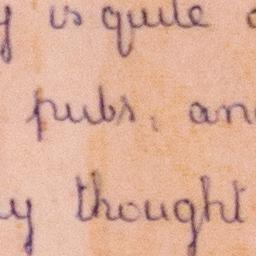 y is quite
pubs, an
y thought